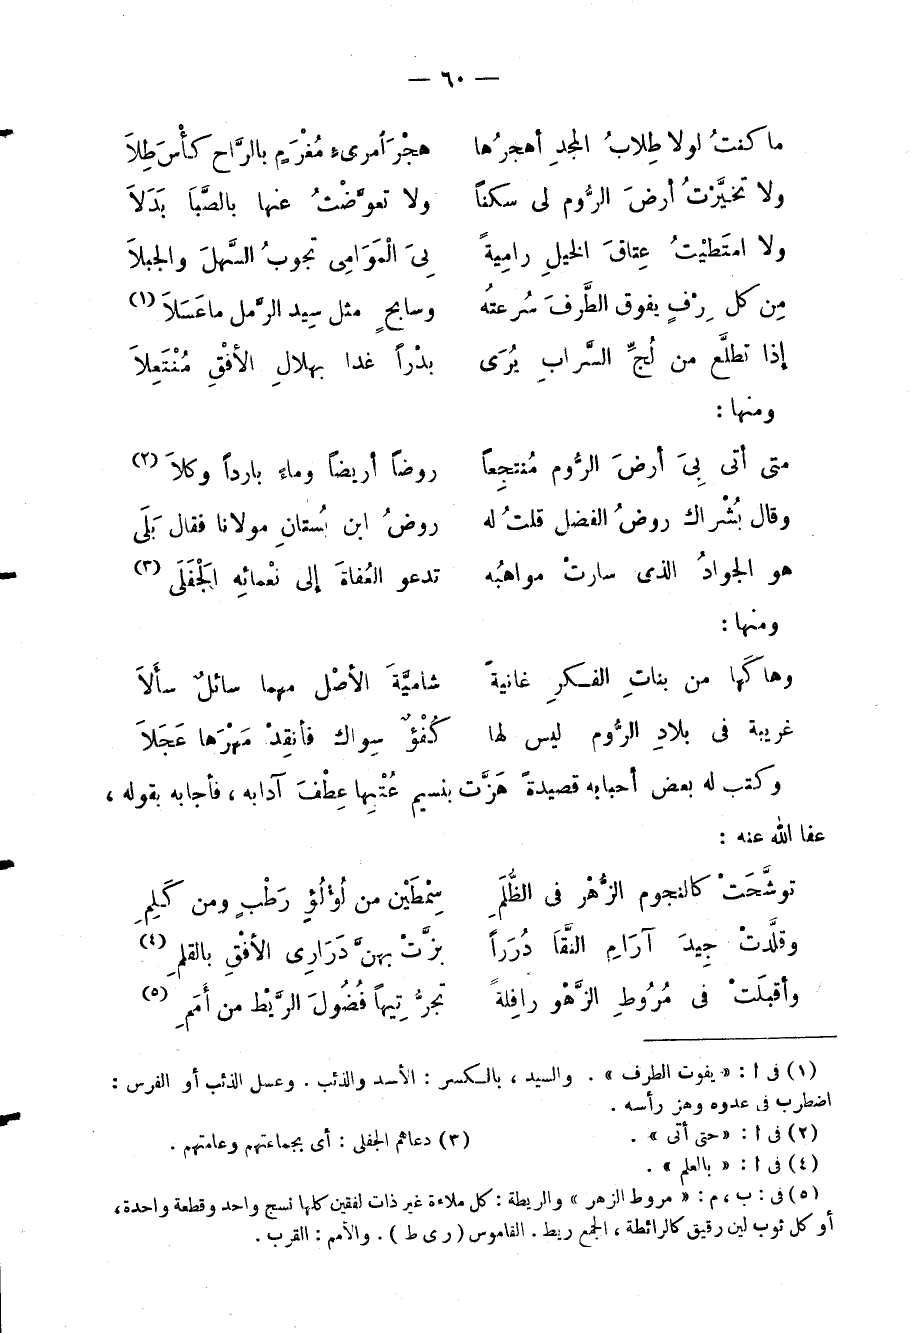 — ٦٠ —
ما كنتُ لولا طِلابُ المجدِ أهجرُها هجْرَ ٱمرىءٍ مُغْرَمٍ بالرَّاح كأْسَ طِلاَ
ولا تخيَّرْتُ أرضَ الرُّوم لى سكناً ولا تعوَّضْتُ عنها بالصَّبَا بَدَلاَ
ولا امتَطيْتُ عِتاقَ الخيلِ رامِيةً بِىَ الْمَوَامِى تجوبُ السَّهلَ والجبلاَ
مِن كل رِفٍ يفوق الطَّرفَ سُرعتهُ وسابحٍ مثل سِيد الرَّمل ماعَسَلاَ (١)
إذا تطلَّع من لُجِّ السَّرابِ يُرَى بدْراً غدا بهلالِ الأفْقِ مُنْتَعِلاَ
ومنها :
متى أتى بِىَ أرضَ الرُّوم مُنتجِعاً روضاً أريضاً وماءً بارداً وكلاَ (٢)
وقال بُشْراك روضُ الفضل قلتُ له روضُ ابن بُستانِ مولانا فقال بَلَى
هو الجوادُ الذى سارتْ مواهبُه تدعو العُفاةَ إلى نعْمائِهِ الجَْفَلَى (٣)
ومنها :
وهاكَها من بناتِ الفكرِ غانيةً شاميَّةَ الأصْل مهما سائلٌ سأَلاَ
غريبة فى بلادِ الرُّوم ليس لها كُفْؤٌ سِواك فأنقِدْ مَهْرَها عَجَلاَ
وكتب له بعض أحبابه قصيدةً هَزَّت بنسيم عُتْبِها عِطْفَ آدابه ، فأجابه بقوله ،
عفا الله عنه :
توشَّحَتْ كالنجوم الزُّهْر فى الظُّلَمِ سِمْطَيْن من لُؤْلُؤٍ رَطْبٍ ومن كَلِمِ
وقلَّدتْ جِيدَ آرَامِ النَّقَا دُرَراً بزَّتْ بهنَّ دَرَارِى الأفْقِ بالقلمِ (٤)
وأقبلَتْ فى مُرُوطِ الزَّهْو رافِلةً تجرُّ تِيهاً فُضُولَ الرَّيْط من أَمَمِ (٥)
(١) فى ا : « يفوت الطرف » . والسيد ، بالكسر : الأسد والذئب . وعسل الذئب أو الفرس :
اضطرب فى عدوه وهز رأسه .
(٢) فى ا : « حتى أتى » . (٣) دعاهم الجفلى : أى بجماعتهم وعامتهم .
(٤) فى ا : « بالعلم » .
(٥) فى : ب ، م : « مروط الزهر » والريطة : كل ملاءة غير ذات لفقين كلها نسج واحد وقطعة واحدة ،
أو كل ثوب لين رقيق كالرائطة ، الجمع ريط . القاموس ( ر ى ط ) . والأمم : القرب .